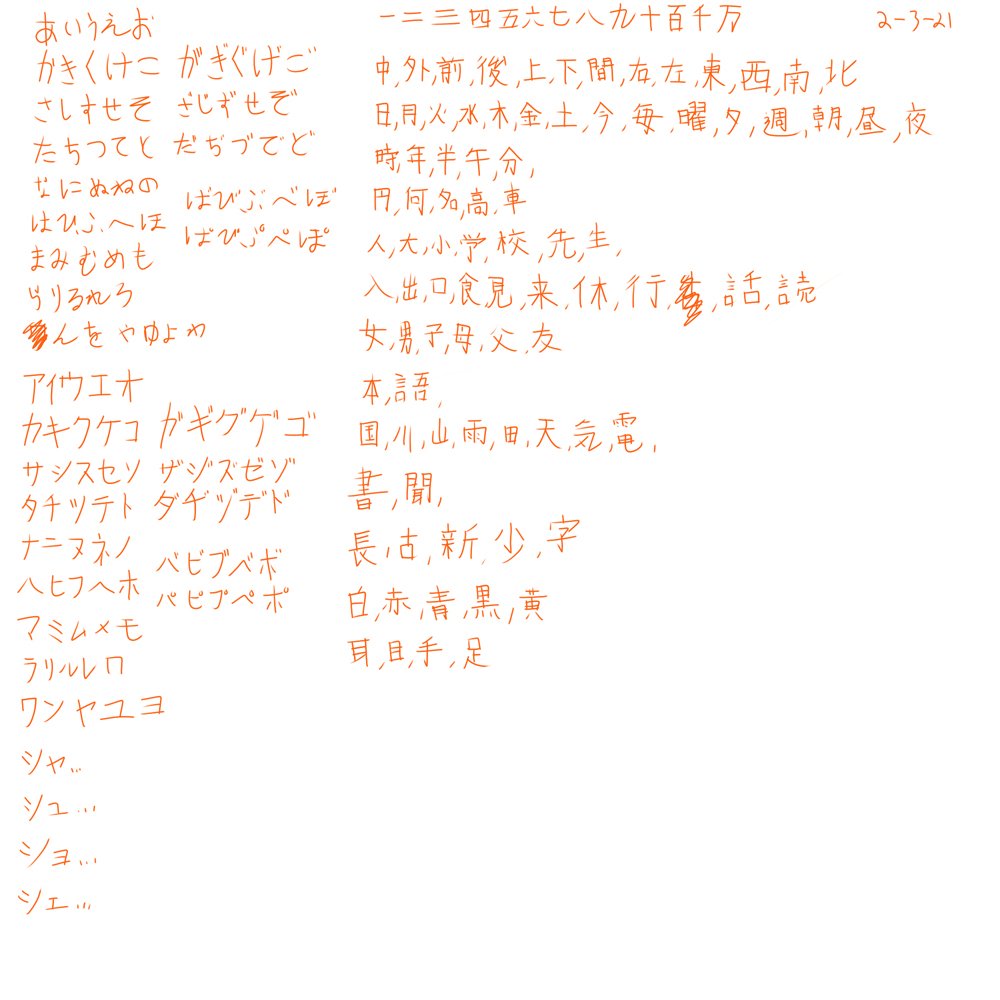 あいうえお
かきくけこ がぎぐげご
さしすせそ ざじずせぞ
たちつてと だぢづでど
なにぬねの
はひふへほ ばびぶべぼ
まみむめも ぱぴぷぺぽ
らりるれろ
んをやゆよわ
アイウエオ
カキクケコ ガギグゲゴ
サシスセソ ザジズゼゾ
タチツテト ダヂヅデド
ナニヌネノ
ハヒフヘホ バビブベボ
マミムメモ パピプペポ
ラリルレロ
ワンヤユヨ
シャ...
シュ...
ショ...
シェ...
一二三四五六七八九十百千万
2-3-21
中,外,前,後,上,下,間,右,左,東,西,南,北
日,月,火,水,木,金,土,今,毎,曜,夕,週,朝,昼,夜
時,年,半,午,分,
円,何,名,高,車
人,大,小,学,校,先,生,
入,出,口,食,見,来,休,行,話,読
女,男,子,母,父,友
本,語,
国,川,山,雨,田,天,気,電,
書,聞,
長,古,新,少,字
白,赤,青,黒,黄
耳,目,手,足